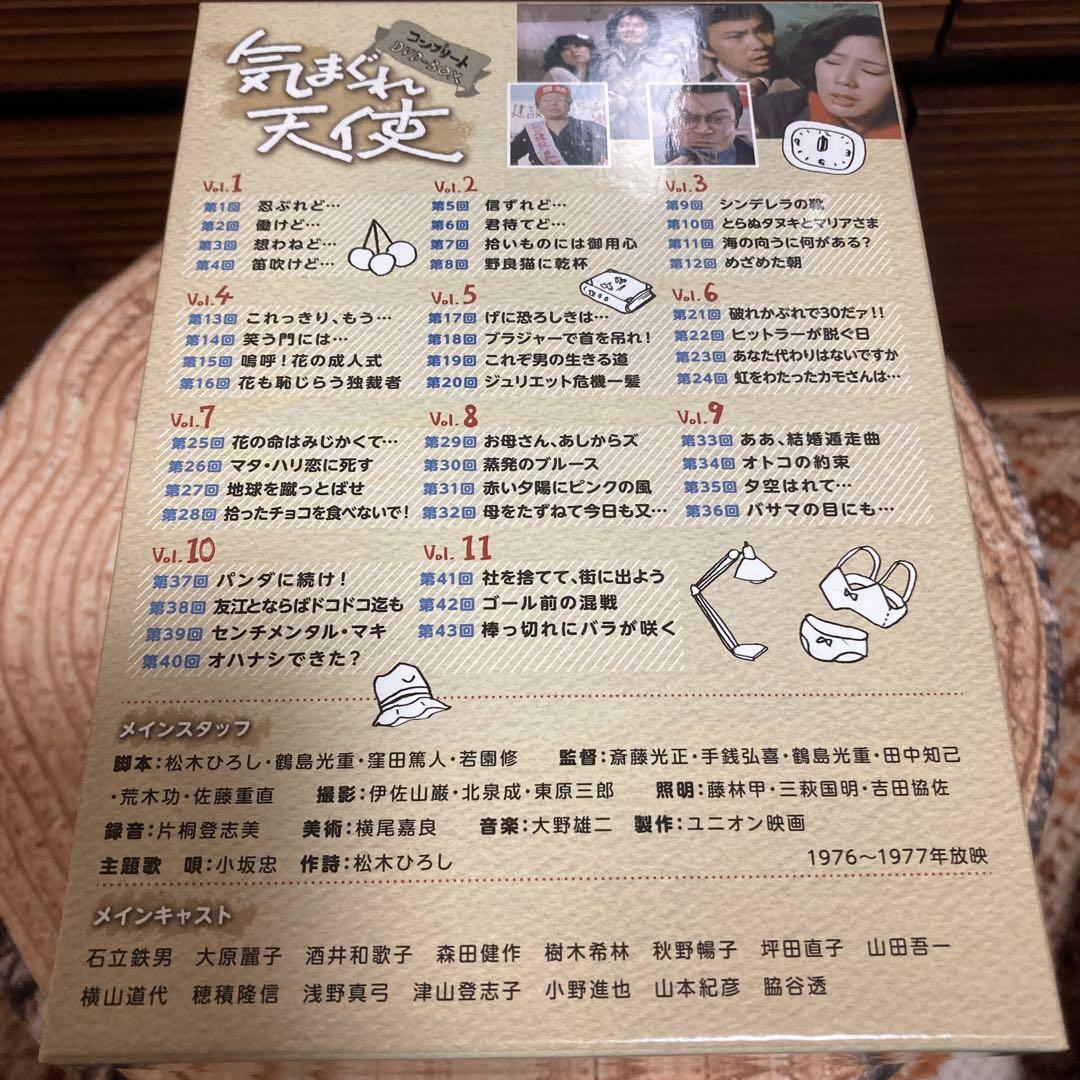 気まぐれ
天使
コンプリート
DVD-BOX
Vol.1
第1回 忍ぶれど…
第2回 働けど…
第3回 想わねど…
第4回 笛吹けど…
Vol.2
第5回 信ずれど…
第6回 君待てど…
第7回 拾いものには御用心
第8回 野良猫に乾杯
Vol.3
第9回 シンデレラの靴
第10回 とらぬタヌキとマリアさま
第11回 海の向うに何がある?
第12回 めざめた朝
Vol.4
第13回 これっきり、もう…
第14回 笑う門には…
第15回 嗚呼!花の成人式
第16回 花も恥じらう独裁者
Vol.5
第17回 げに恐ろしきは…
第18回 ブラジャーで首を吊れ!
第19回 これぞ男の生きる道
第20回 ジュリエット危機一髪
Vol.6
第21回 破れかぶれで30だァ!!
第22回 ヒットラーが脱ぐ日
第23回 あなた代わりはないですか
第24回 虹をわたったカモさんは…
Vol.7
第25回 花の命はみじかくて…
第26回 マタ・ハリ恋に死す
第27回 地球を蹴っとばせ
第28回 拾ったチョコを食べないで!
Vol.8
第29回 お母さん、あしからズ
第30回 蒸発のブルース
第31回 赤い夕陽にピンクの風
第32回 母をたずねて今日も又…
Vol.9
第33回 ああ、結婚遁走曲
第34回 オトコの約束
第35回 夕空はれて…
第36回 バサマの目にも…
Vol.10
第37回 パンダに続け!
第38回 友江とならばドコドコ迄も
第39回 センチメンタル・マキ
第40回 オハナシできた?
Vol.11
第41回 社を捨てて、街に出よう
第42回 ゴール前の混戦
第43回 棒っ切れにバラが咲く
メインスタッフ
脚本:松木ひろし・鶴島光重・窪田篤人・若園修 監督:斎藤光正・手銭弘喜・鶴島光重・田中知己
・荒木功・佐藤重直 撮影:伊佐山巌・北泉成・東原三郎 照明:藤林甲・三萩国明・吉田協佐
録音:片桐登志美 美術:横尾嘉良 音楽:大野雄二 製作:ユニオン映画
主題歌 唄:小坂忠 作詩:松木ひろし 1976~1977年放映
メインキャスト
石立鉄男 大原麗子 酒井和歌子 森田健作 樹木希林 秋野暢子 坪田直子 山田吾一
横山道代 穂積隆信 浅野真弓 津山登志子 小野進也 山本紀彦 脇谷透